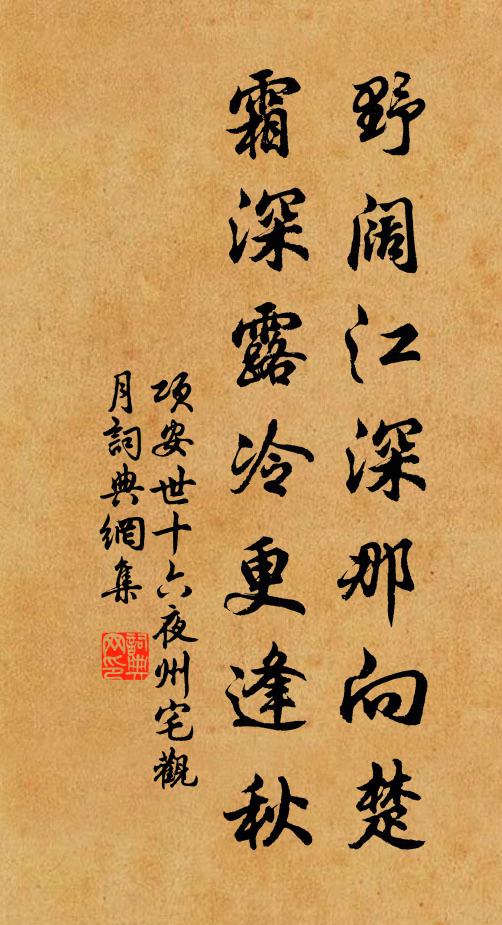 野阔江深那向楚
霜深露冷更逢秋
项安世十六夜州宅觀
月詞典網集
詞典
网印